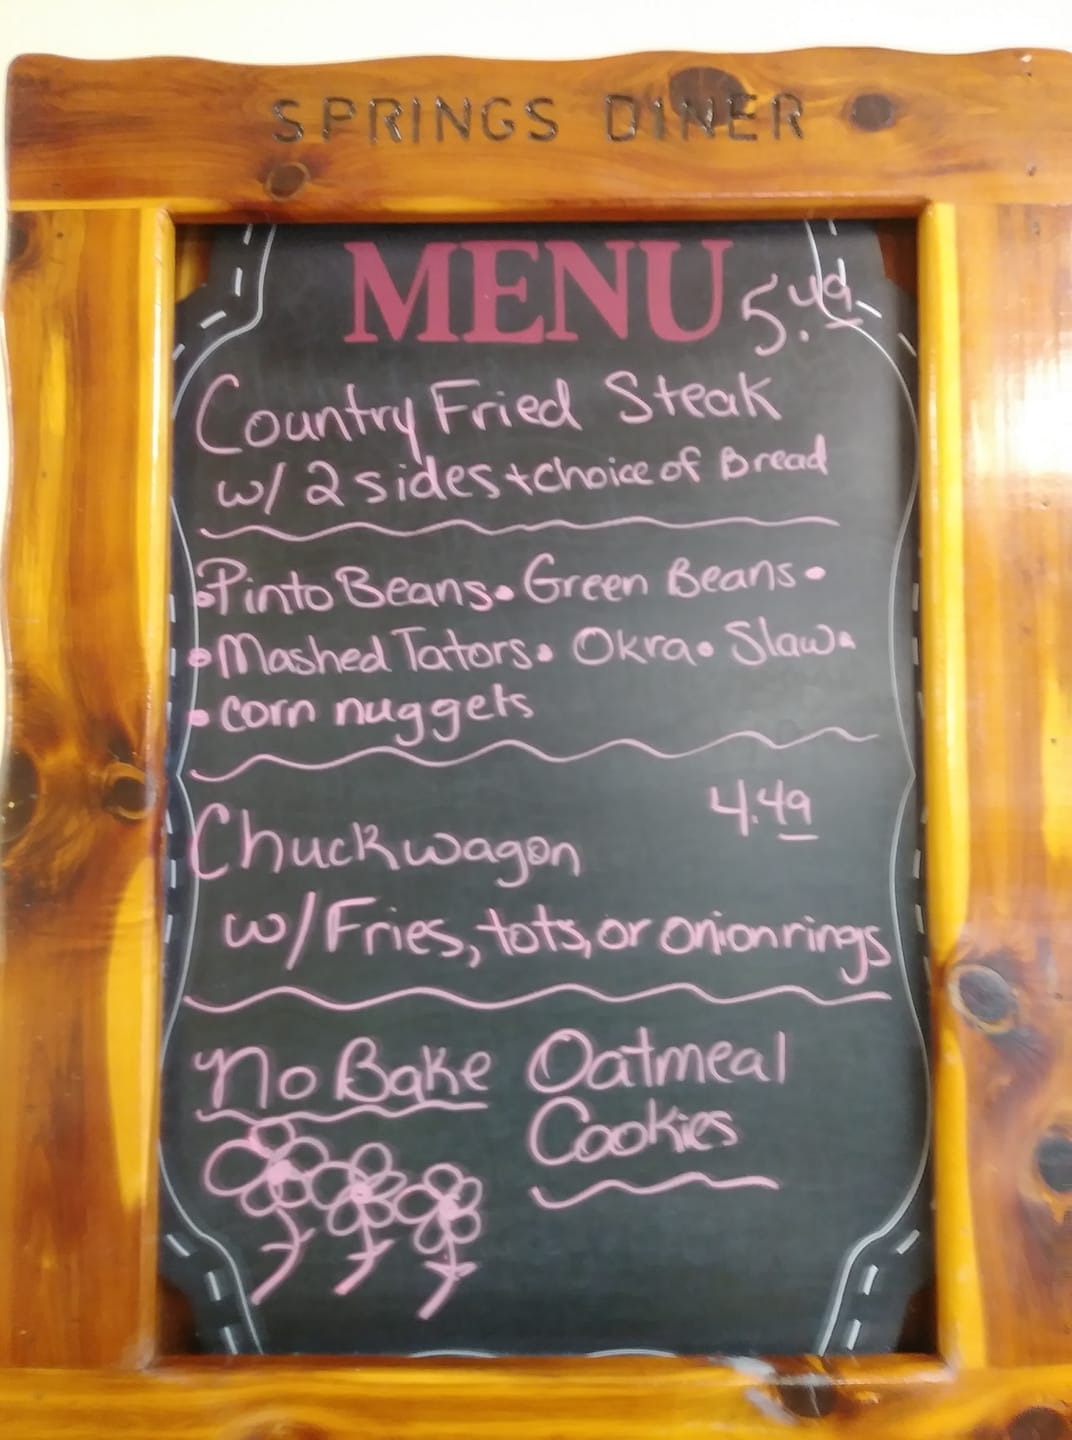 SPRINGS DINER
MENU 5.49
Country Fried Steak
w/ 2 sides + choice of Bread
•Pinto Beans• Green Beans•
•Mashed Tators• Okra• Slaw•
•corn nuggets
4.49
Chuckwagon
w/ Fries, tots, or onion rings
No Bake Oatmeal
Cookies